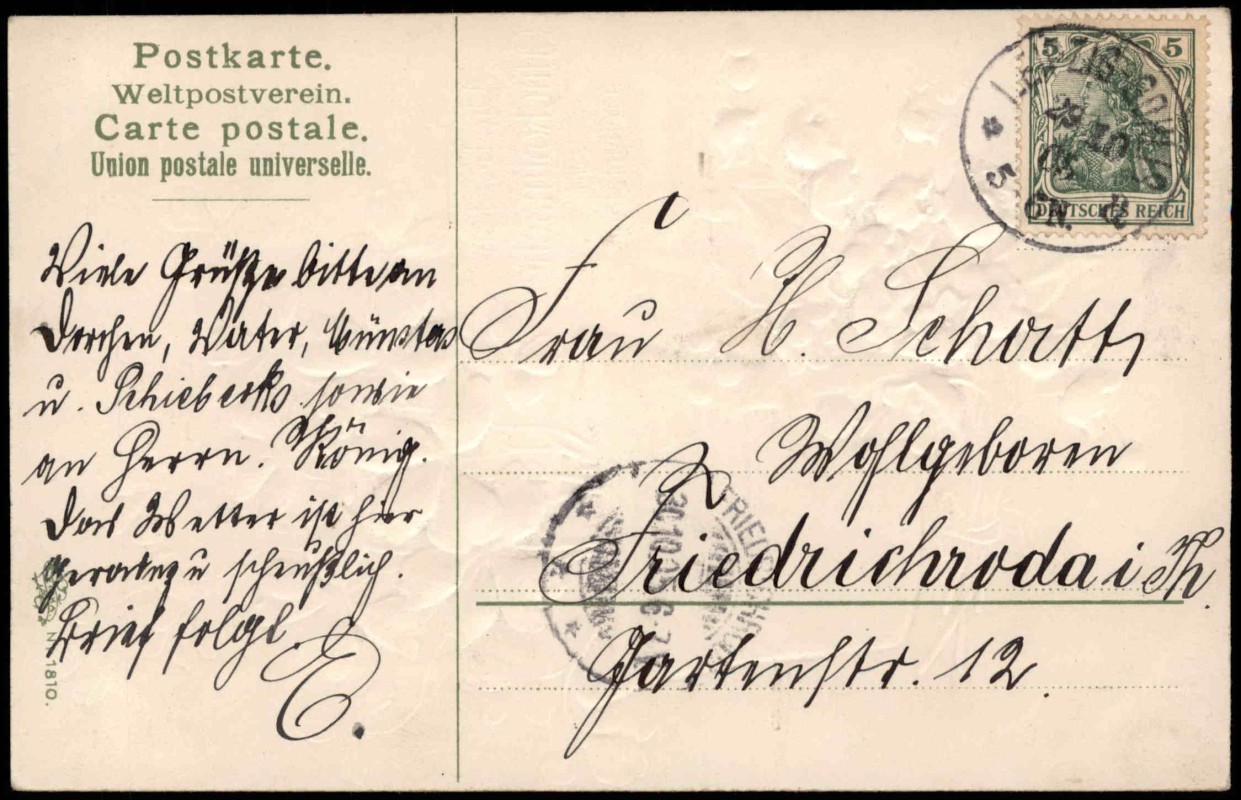 Postkarte.
Weltpostverein.
Carte postale.
Union postale universelle.
Viele Grüße bitte an
Dorchen, Vater,
u. Schiebecks sowie
an Herrn. König.
Das Wetter ist hier
geradezu scheußlich.
Brief folgt.
E.
N 1810.
5 5
DEUTSCHES REICH
Frau H. Schatt,
Wohlgeboren
Friedrichroda i Th.
Gartenstr. 12.